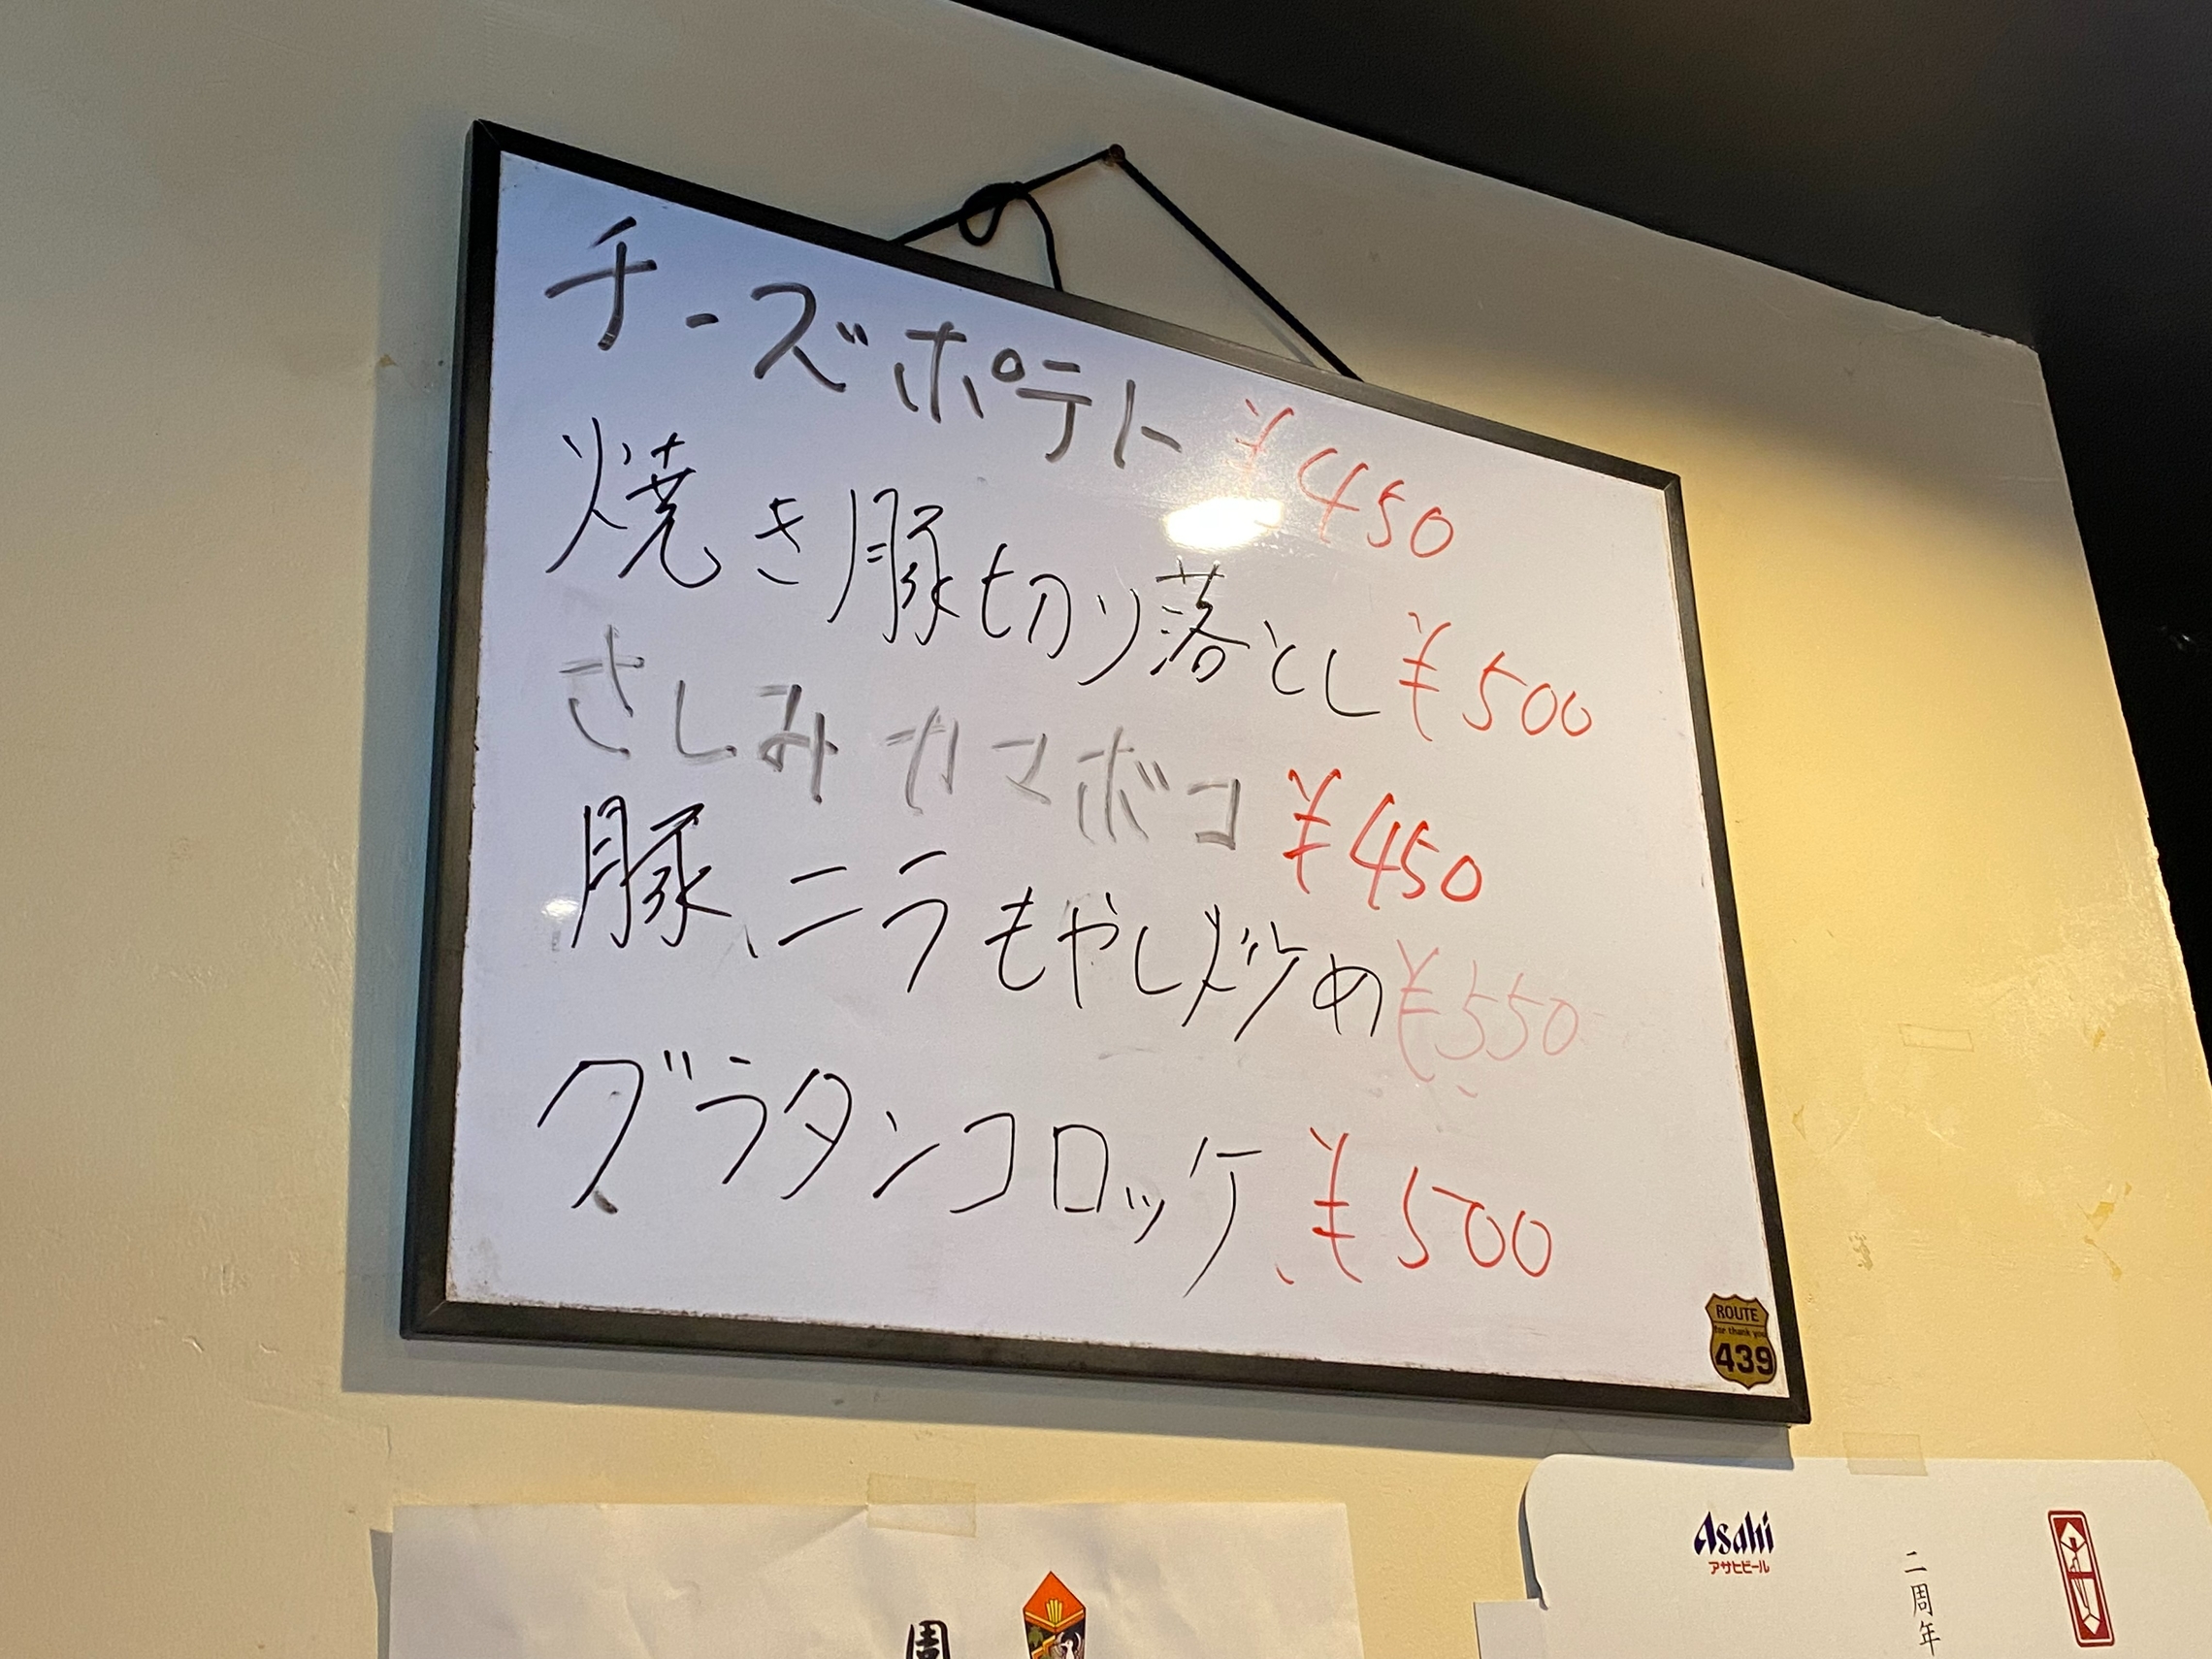 チーズポテト ¥450
焼き豚切り落とし ¥500
さしみカマボコ ¥450
豚、ニラもやし炒め ¥550
グラタンコロッケ ¥500
ROUTE
for thank you
439
Asahi
アサヒビール
二周年
周